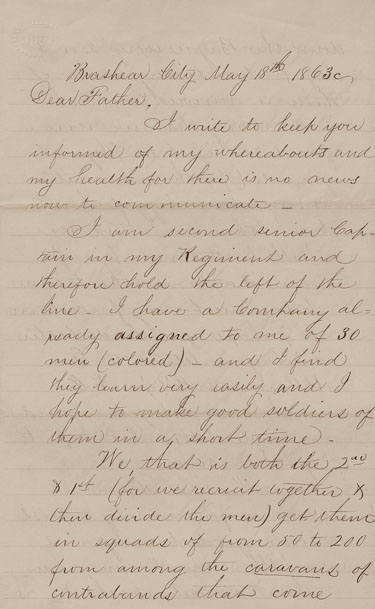 Brashear City May 18th 1863
Dear Father,
I write to keep you
informed of my whereabouts and
my health for there is no news
now to communicate —
I am second senior Cap-
tain in my Regiment and
therefore hold the left of the
line - I have a Company al=
ready assigned to me of 30
men (colored) - and I find
they learn very easily and I
hope to make good soldiers of
them in a short time -
We that is both the 2nd
& 1st (for we recruit together &
then divide the men) get them
in squads of from 50 to 200
from among the caravans of
contrabands that come